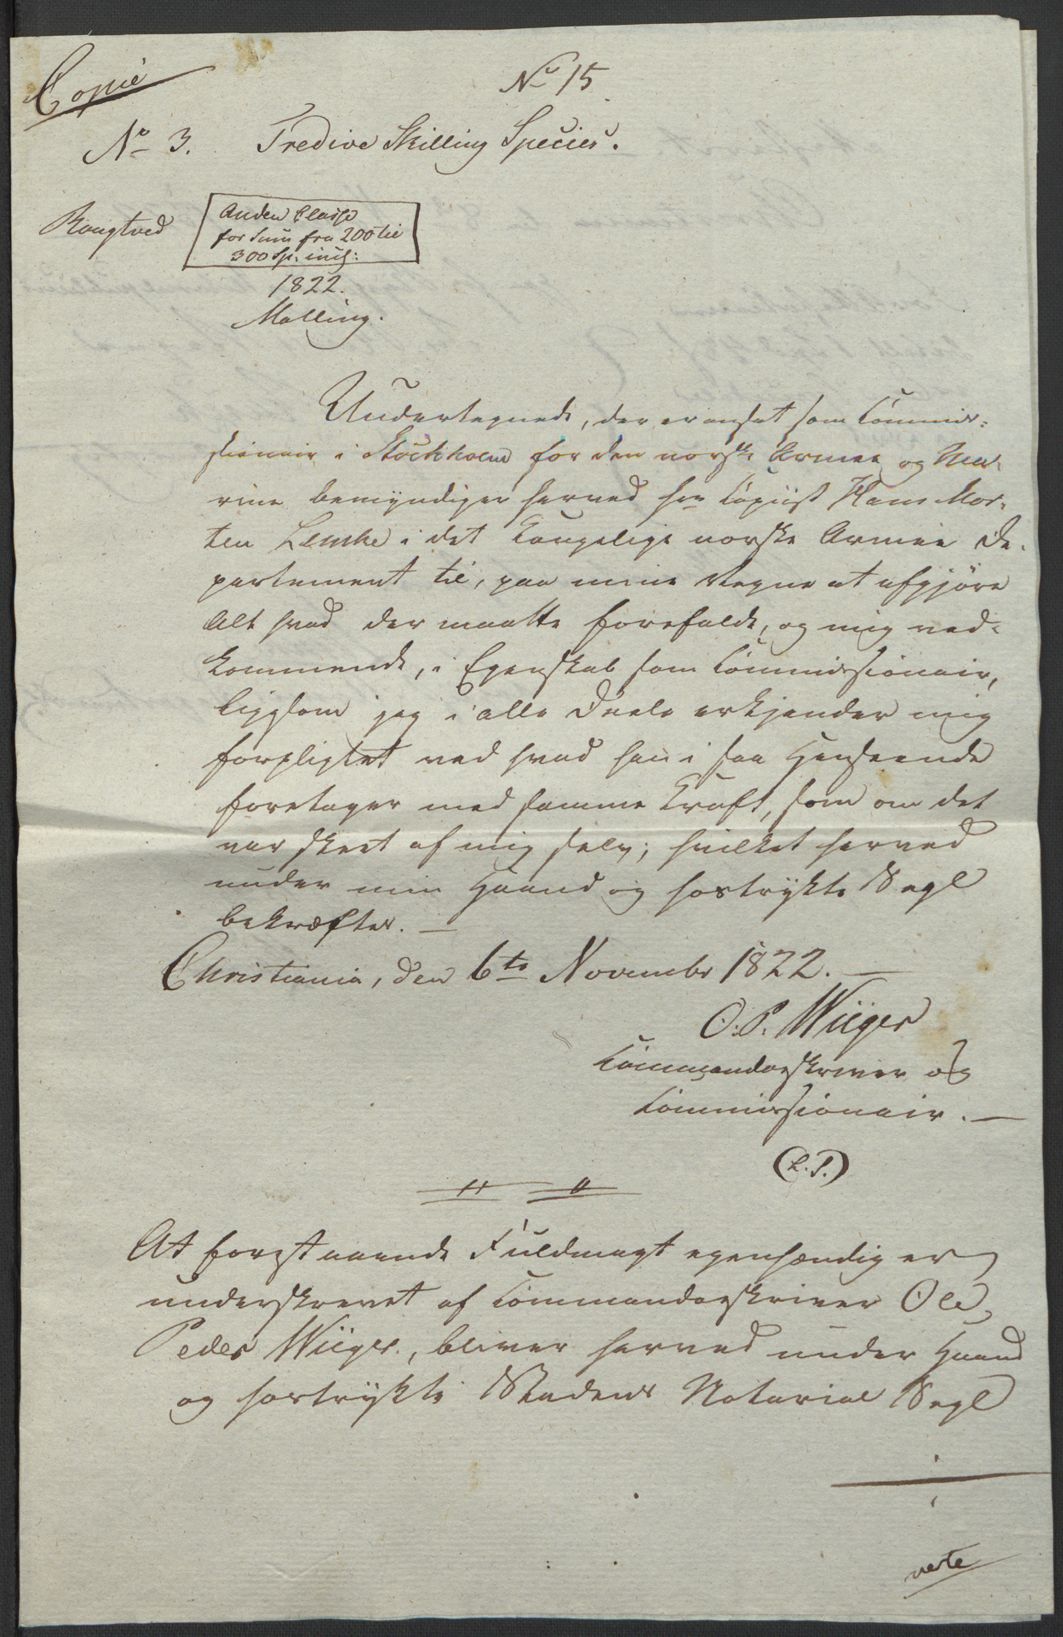 Copie
No 15
No 3. Tredive Skilling Species.
Rougtved
Anden Classe
for Sum fra 200 til
300 Sp. incl:
1822.
Malling.
Undertegnede, der er ansat som Commis-
sionair i Stockholm for den norske Armee og Ma-
rine bemyndiger herved Hr Copiist Hans Mor-
ten Lemke i det Kongelige norske Armee De-
partement til, paa mine Vegne at afgjøre
Alt hvad der maatte forefalde, og mig ved-
kommende, i Egenskab som Commissionair,
ligesom jeg i alle Deele erkjender mig
forpligtet ved hvad han i saa Henseende
foretager med samme Kraft, som om det
var skeet af mig selv; hvilket herved
under min Haand og hostrykte Segl
bekræftes. —
Christiania, den 6te November 1822. —
O. P. Wiiger
Commandeerskriver og
Commissionair. —
(L.S.)
At forestaaende Fuldmagt egenhændig er
underskrevet af Commandeerskriver Ole
Peder Wiiger, bliver herved under Haand
og hostrykte Stadens Notarial Segl
verte